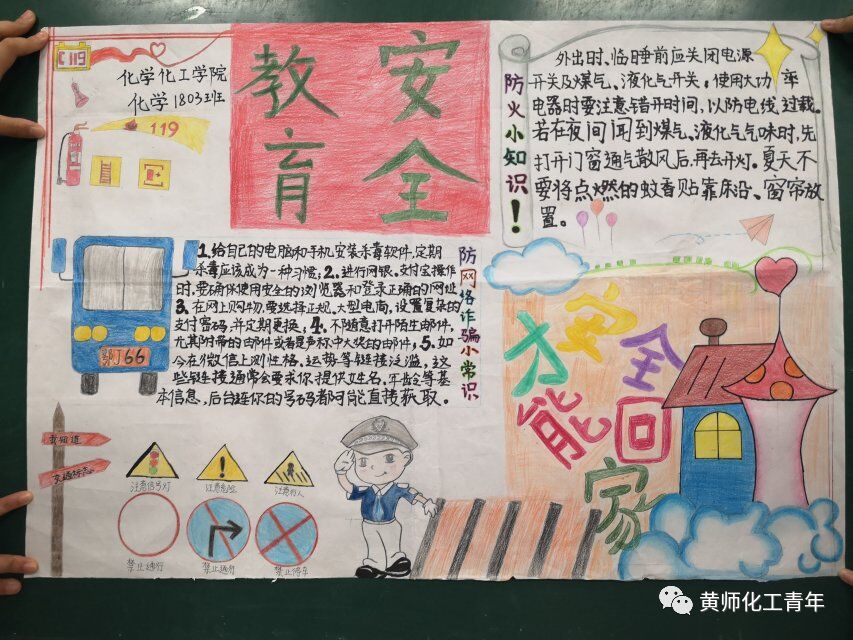 C119
化学化工学院
化学1803班
119
安全
教育
防火小知识!
外出时、临日睡前应关闭电源
开关及煤气、液化气开关,使用大功率
电器时要注意错开时间,以防电线过载。
若在夜间闻到煤气、液化气气味时,先
打开门窗通气散风后,再去开灯。夏天不
要将点燃的蚊香贴靠床沿、窗帘放
置。
鄂J 66
1.给自己的电脑和手机安装杀毒软件,定期
杀毒应该成为一种习惯;2.进行网银、支付宝操作
时,要确保使用安全的浏览器和登录正确的网址
3.在网上购物,要选择正规、大型电商,设置复杂的
支付密码,并定期更换;4.不随意打开陌生邮件,
尤其附带的邮件或者是声称中大奖的邮件;5.如
今在微信上测性格、运势等链接泛滥,这
些链接通常会要求你提供姓名、年龄等基
本信息,后台连你的号码都可能直接获取。
防网络诈骗小常识
安全
才能回
家
要知道
交通标志
注意信号灯
注意危险
注意行人
禁止通行
禁止停车
黄师化工青年